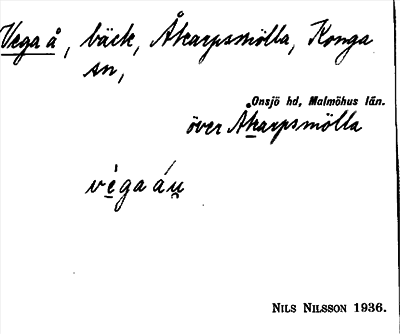 Vega å, bäck, Åkarpsmölla, Konga
sn,
Onsjö hd, Malmöhus län.
över Åkarpsmölla
vèga áu̯
NILS NILSSON 1936.